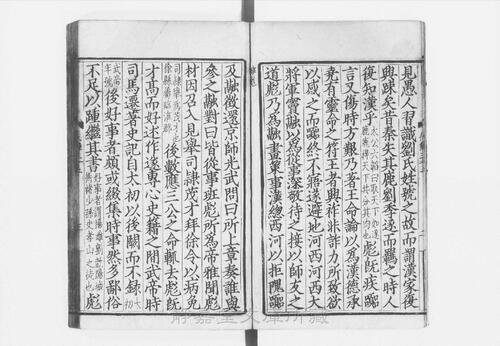 見愚人習識劉氏姓號之故而謂漢家復
興疎矣昔秦失其鹿劉季逐而羈之時人
復知漢乎彪既疾囂
言又傷時方艱乃著王命論以為漢德承
堯有靈命之符王者興祚非詐力所致欲
以感之而囂終不寤遂避地河西河西大
將軍竇融以為從事深敬待之接以師友之
道彪乃為融畫策事漢總西河以拒隗囂
及融徵還京師光武問曰所上章奏誰與
參之融對曰皆從事班彪所為帝雅聞彪
材因召入見舉司隸茂才拜徐令以病免
後數應三公之命輒去彪既
才高而好述作遂專心史籍之閒武帝時
司馬遷著史記自太初以後闕而不錄
後好事者頗或綴集時事然多鄙俗
不足以踵繼其書彪